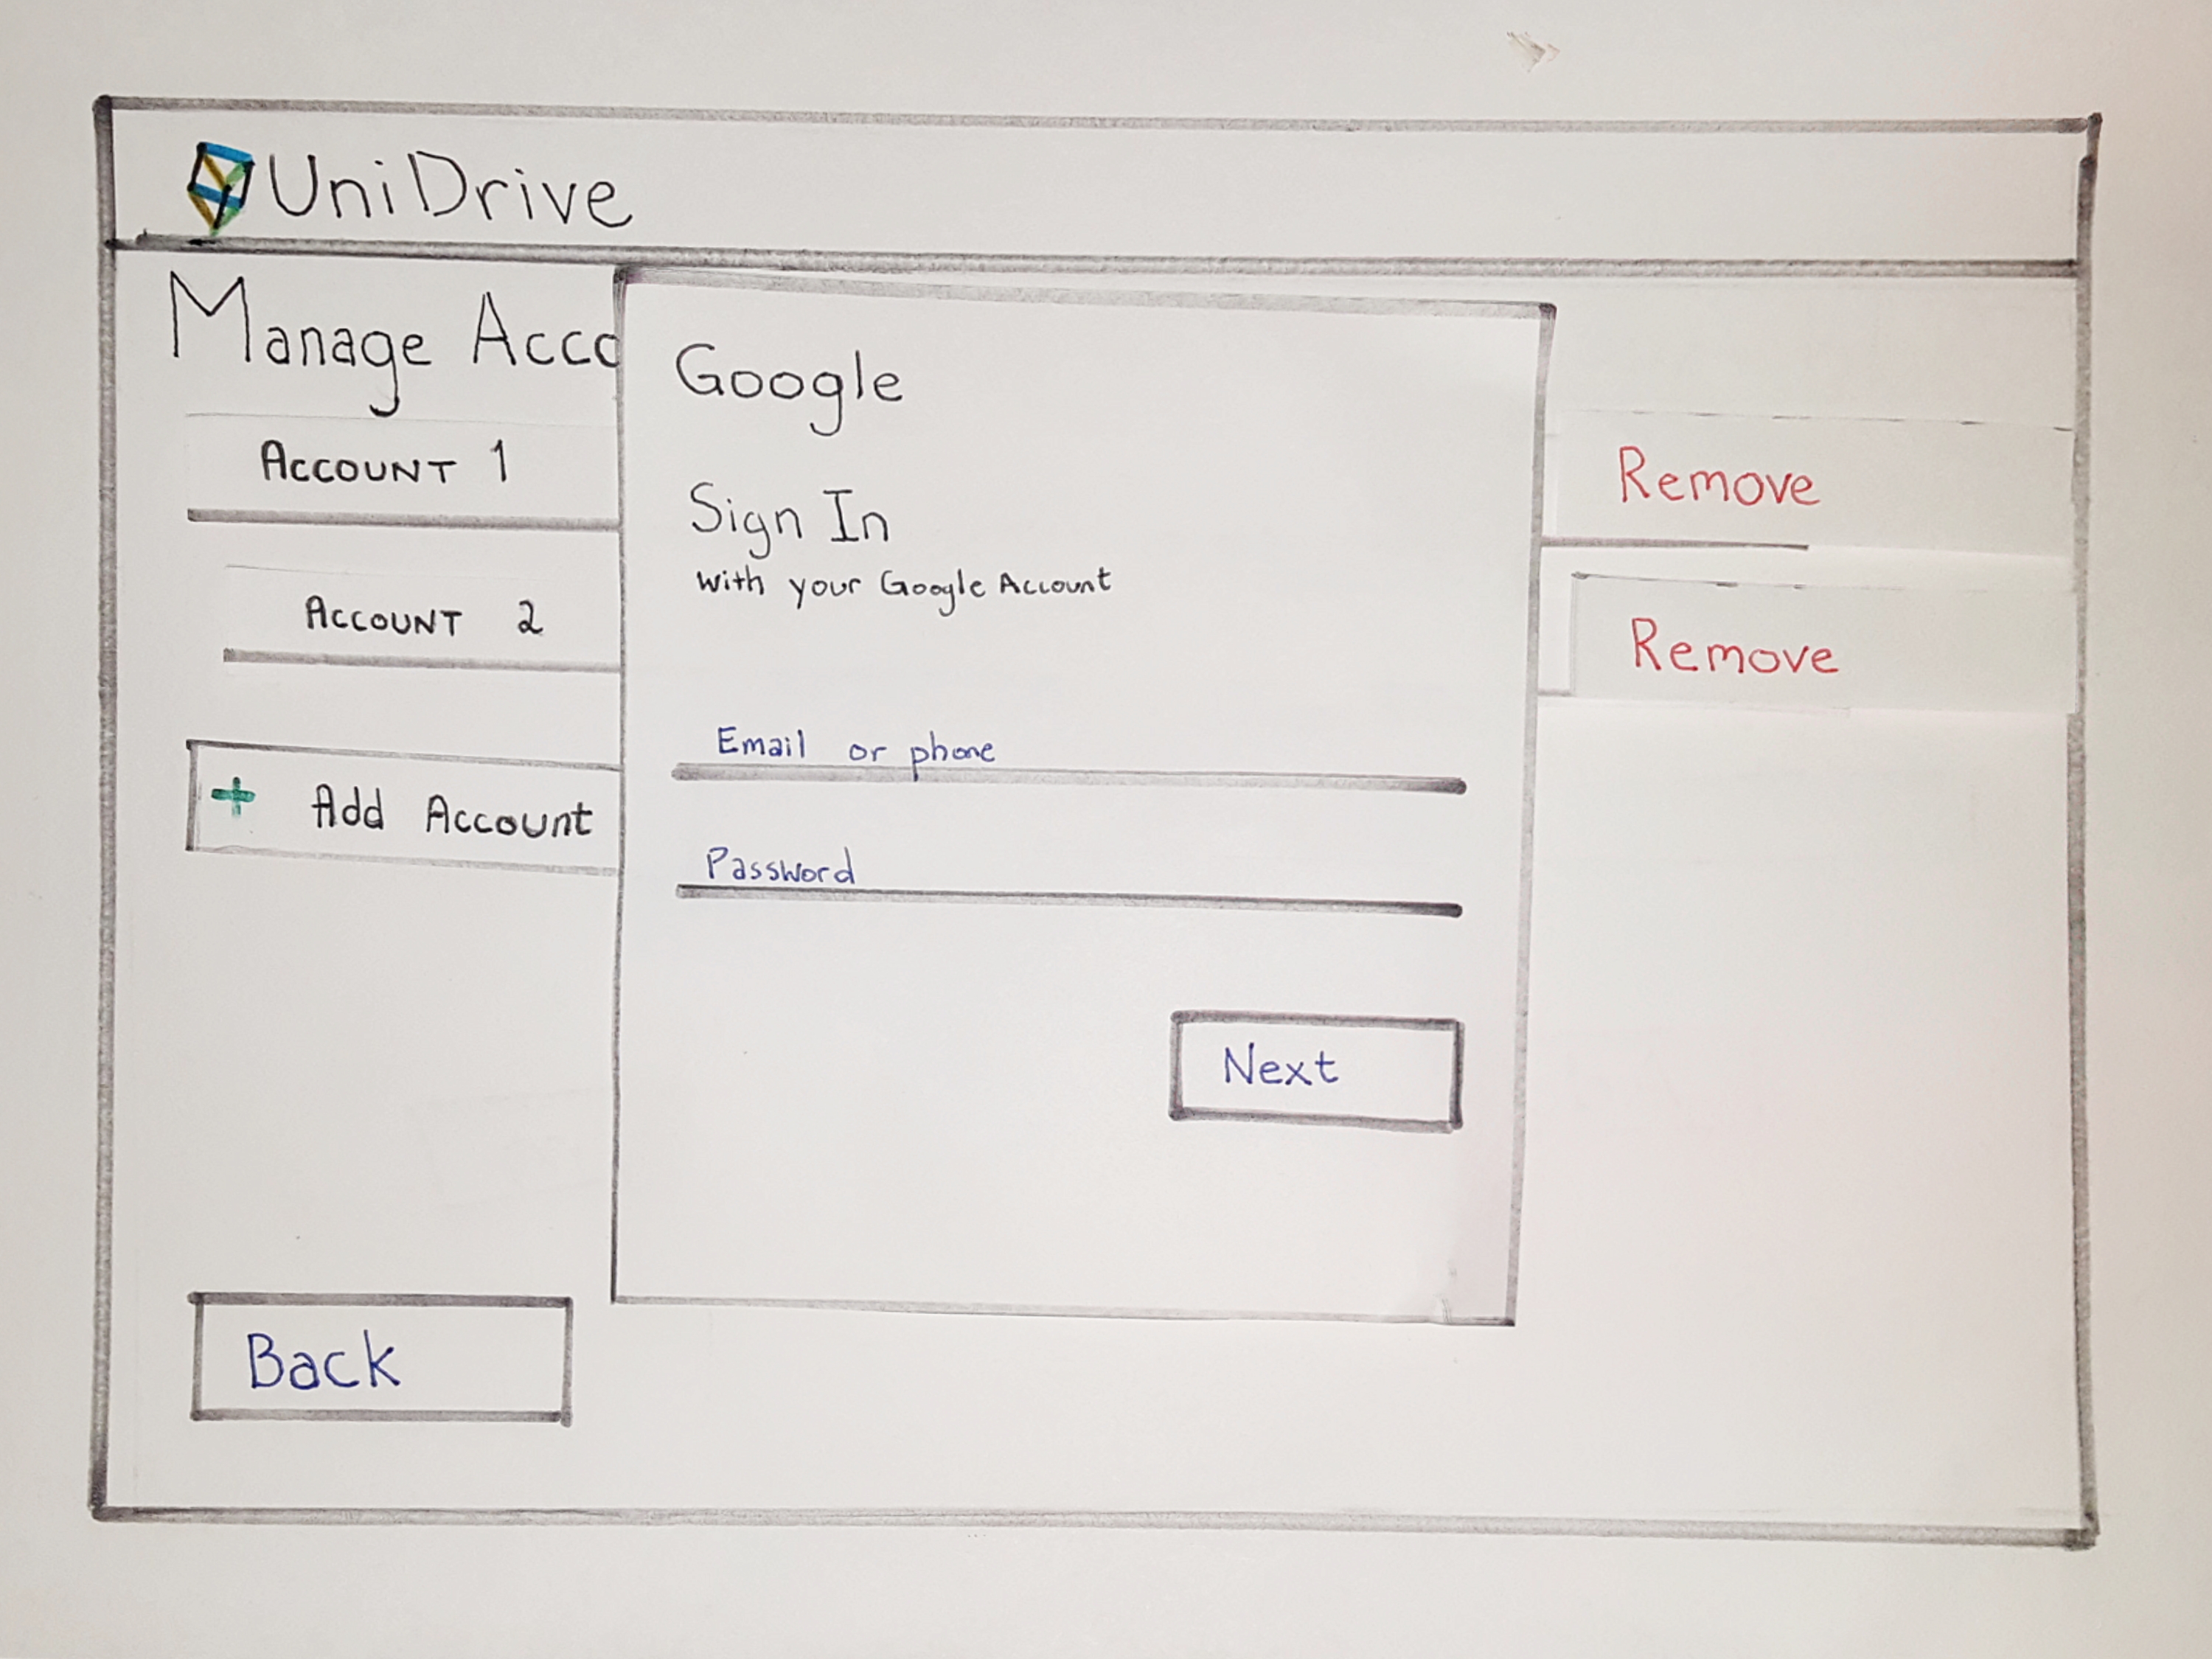 UniDrive
Manage Acco
Account 1
Remove
Account 2
Remove
+ Add Account
Google
Sign In
with your Google Account
Email or phone
Password
Next
Back